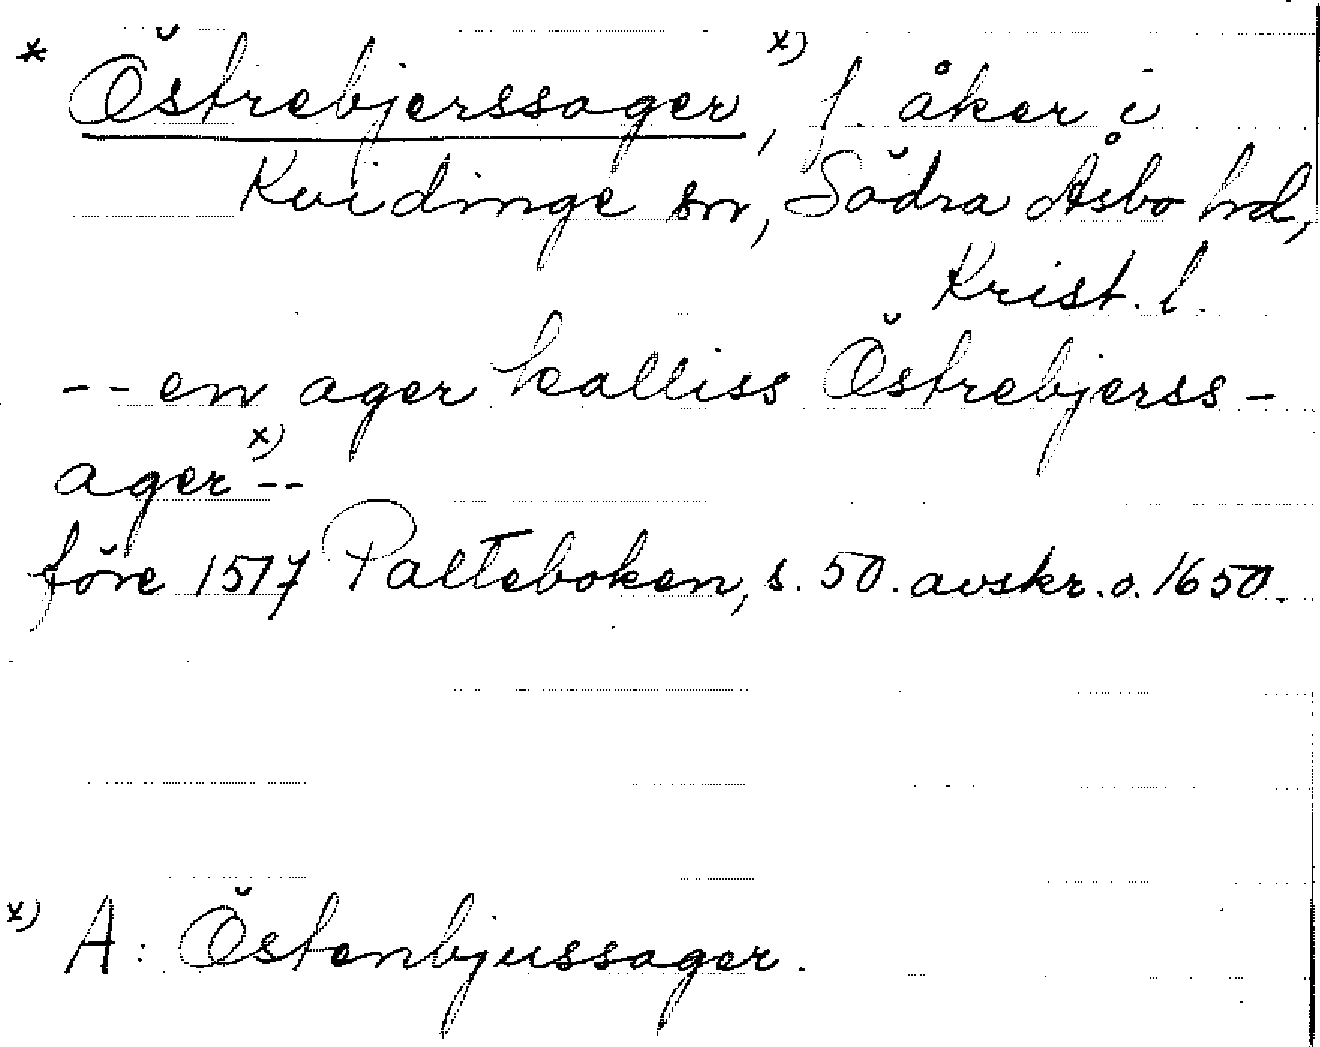 * Östrebjerssager, x) f. åker i
Kvidinge sn, Södra Åsbo hd,
Krist. l.
-- en ager kalliss Östrebjerss-
ager x) --
före 1517 Palteboken, s. 50. avskr. o. 1650.
x) A: Östenbjussager.